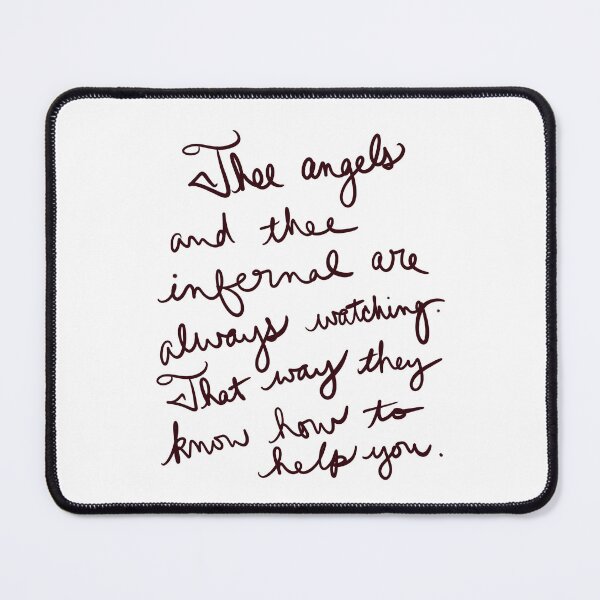 Thee angels
and thee
infernal are
always watching.
That way they
know how to
help you.